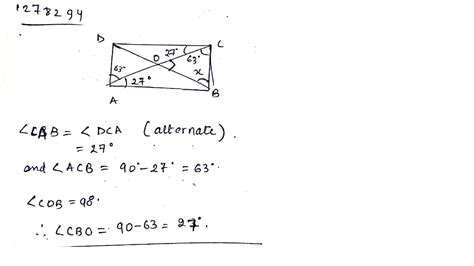 1278294
D
C
O
27°
63°
63°
x
27°
A
B
∠CAB = ∠DCA (alternate).
= 27°
and ∠ACB = 90° - 27° = 63°.
∠COB = 98°
∴ ∠CBO = 90 - 63 = 27°.